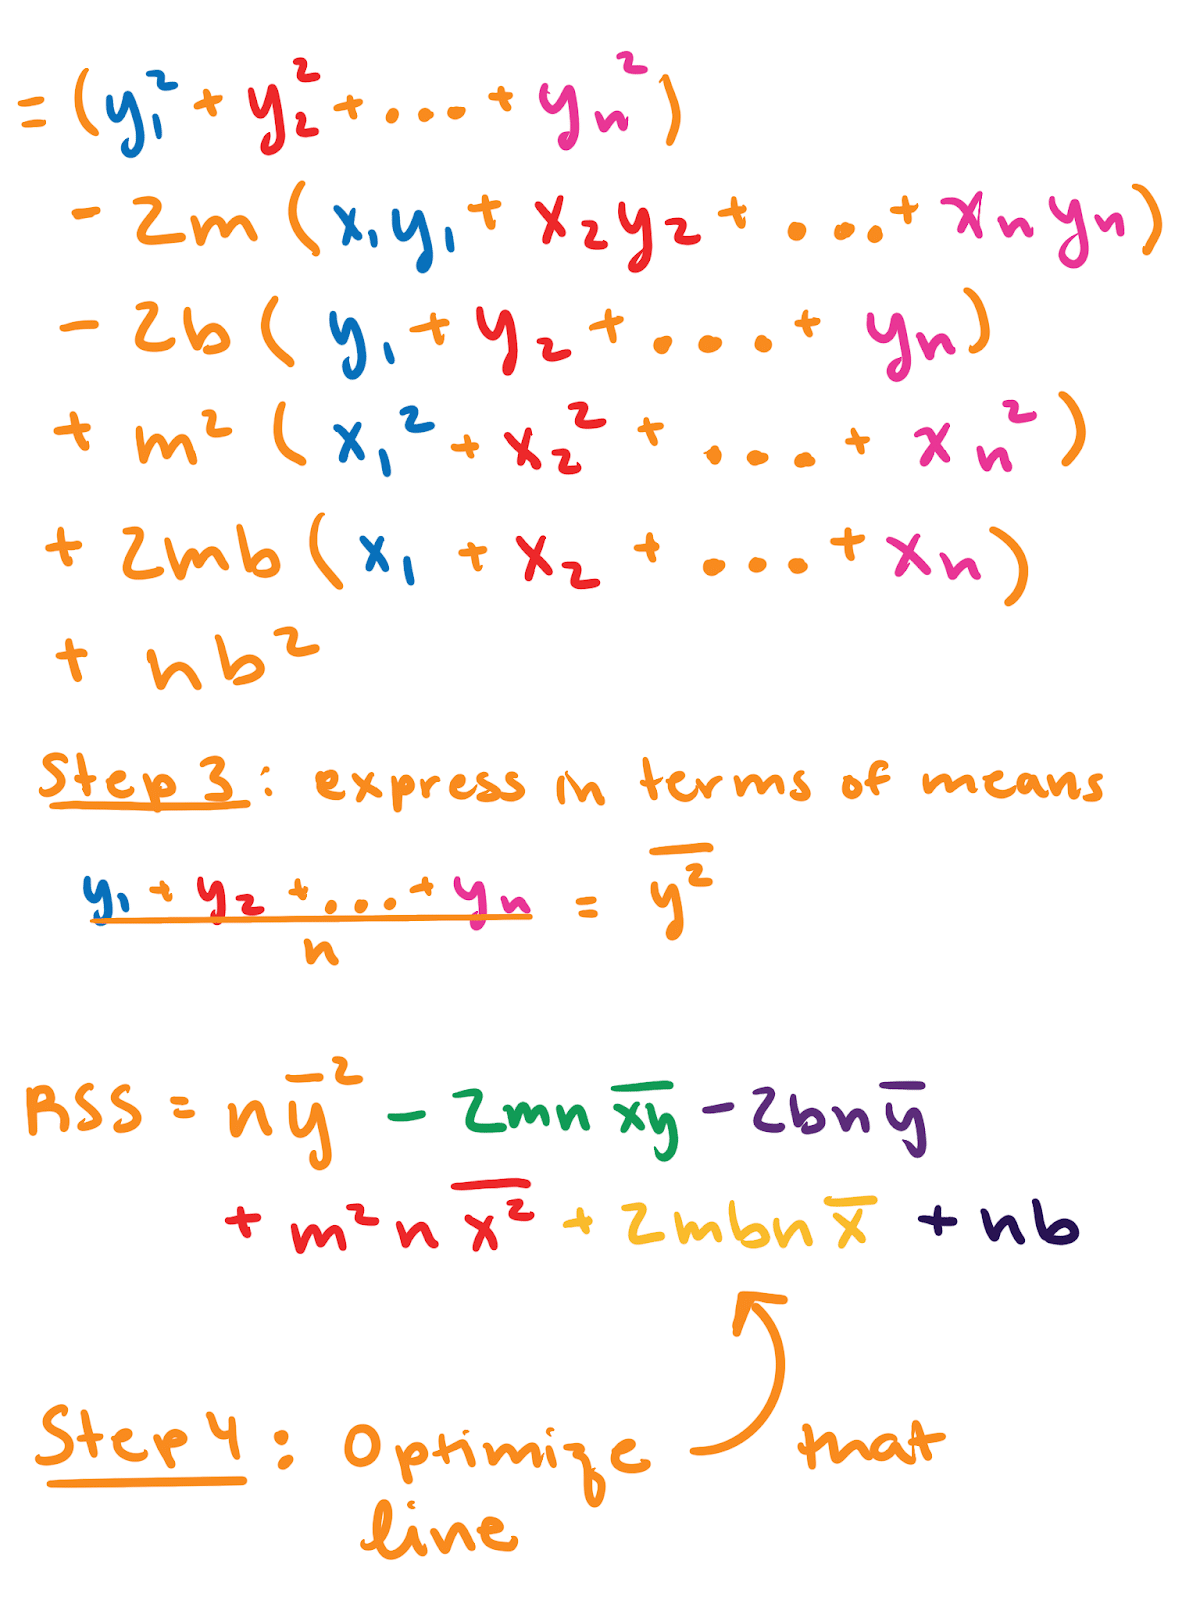 = (y₁² + y₂² + .... + yₙ²)
- 2m (x₁y₁ + x₂y₂ + .... + xₙyₙ)
- 2b (y₁ + y₂ + .... + yₙ)
+ m² (x₁² + x₂² + .... + xₙ²)
+ 2mb (x₁ + x₂ + .... + xₙ)
+ nb²
Step 3: express in terms of means
(y₁ + y₂ + .... + yₙ)/n = \overline{y²}
RSS = n\overline{y}² - 2mn\overline{xy} - 2bn\overline{y}
+ m²n\overline{x²} + 2mbn\overline{x} + nb
Step 4: Optimize that
line